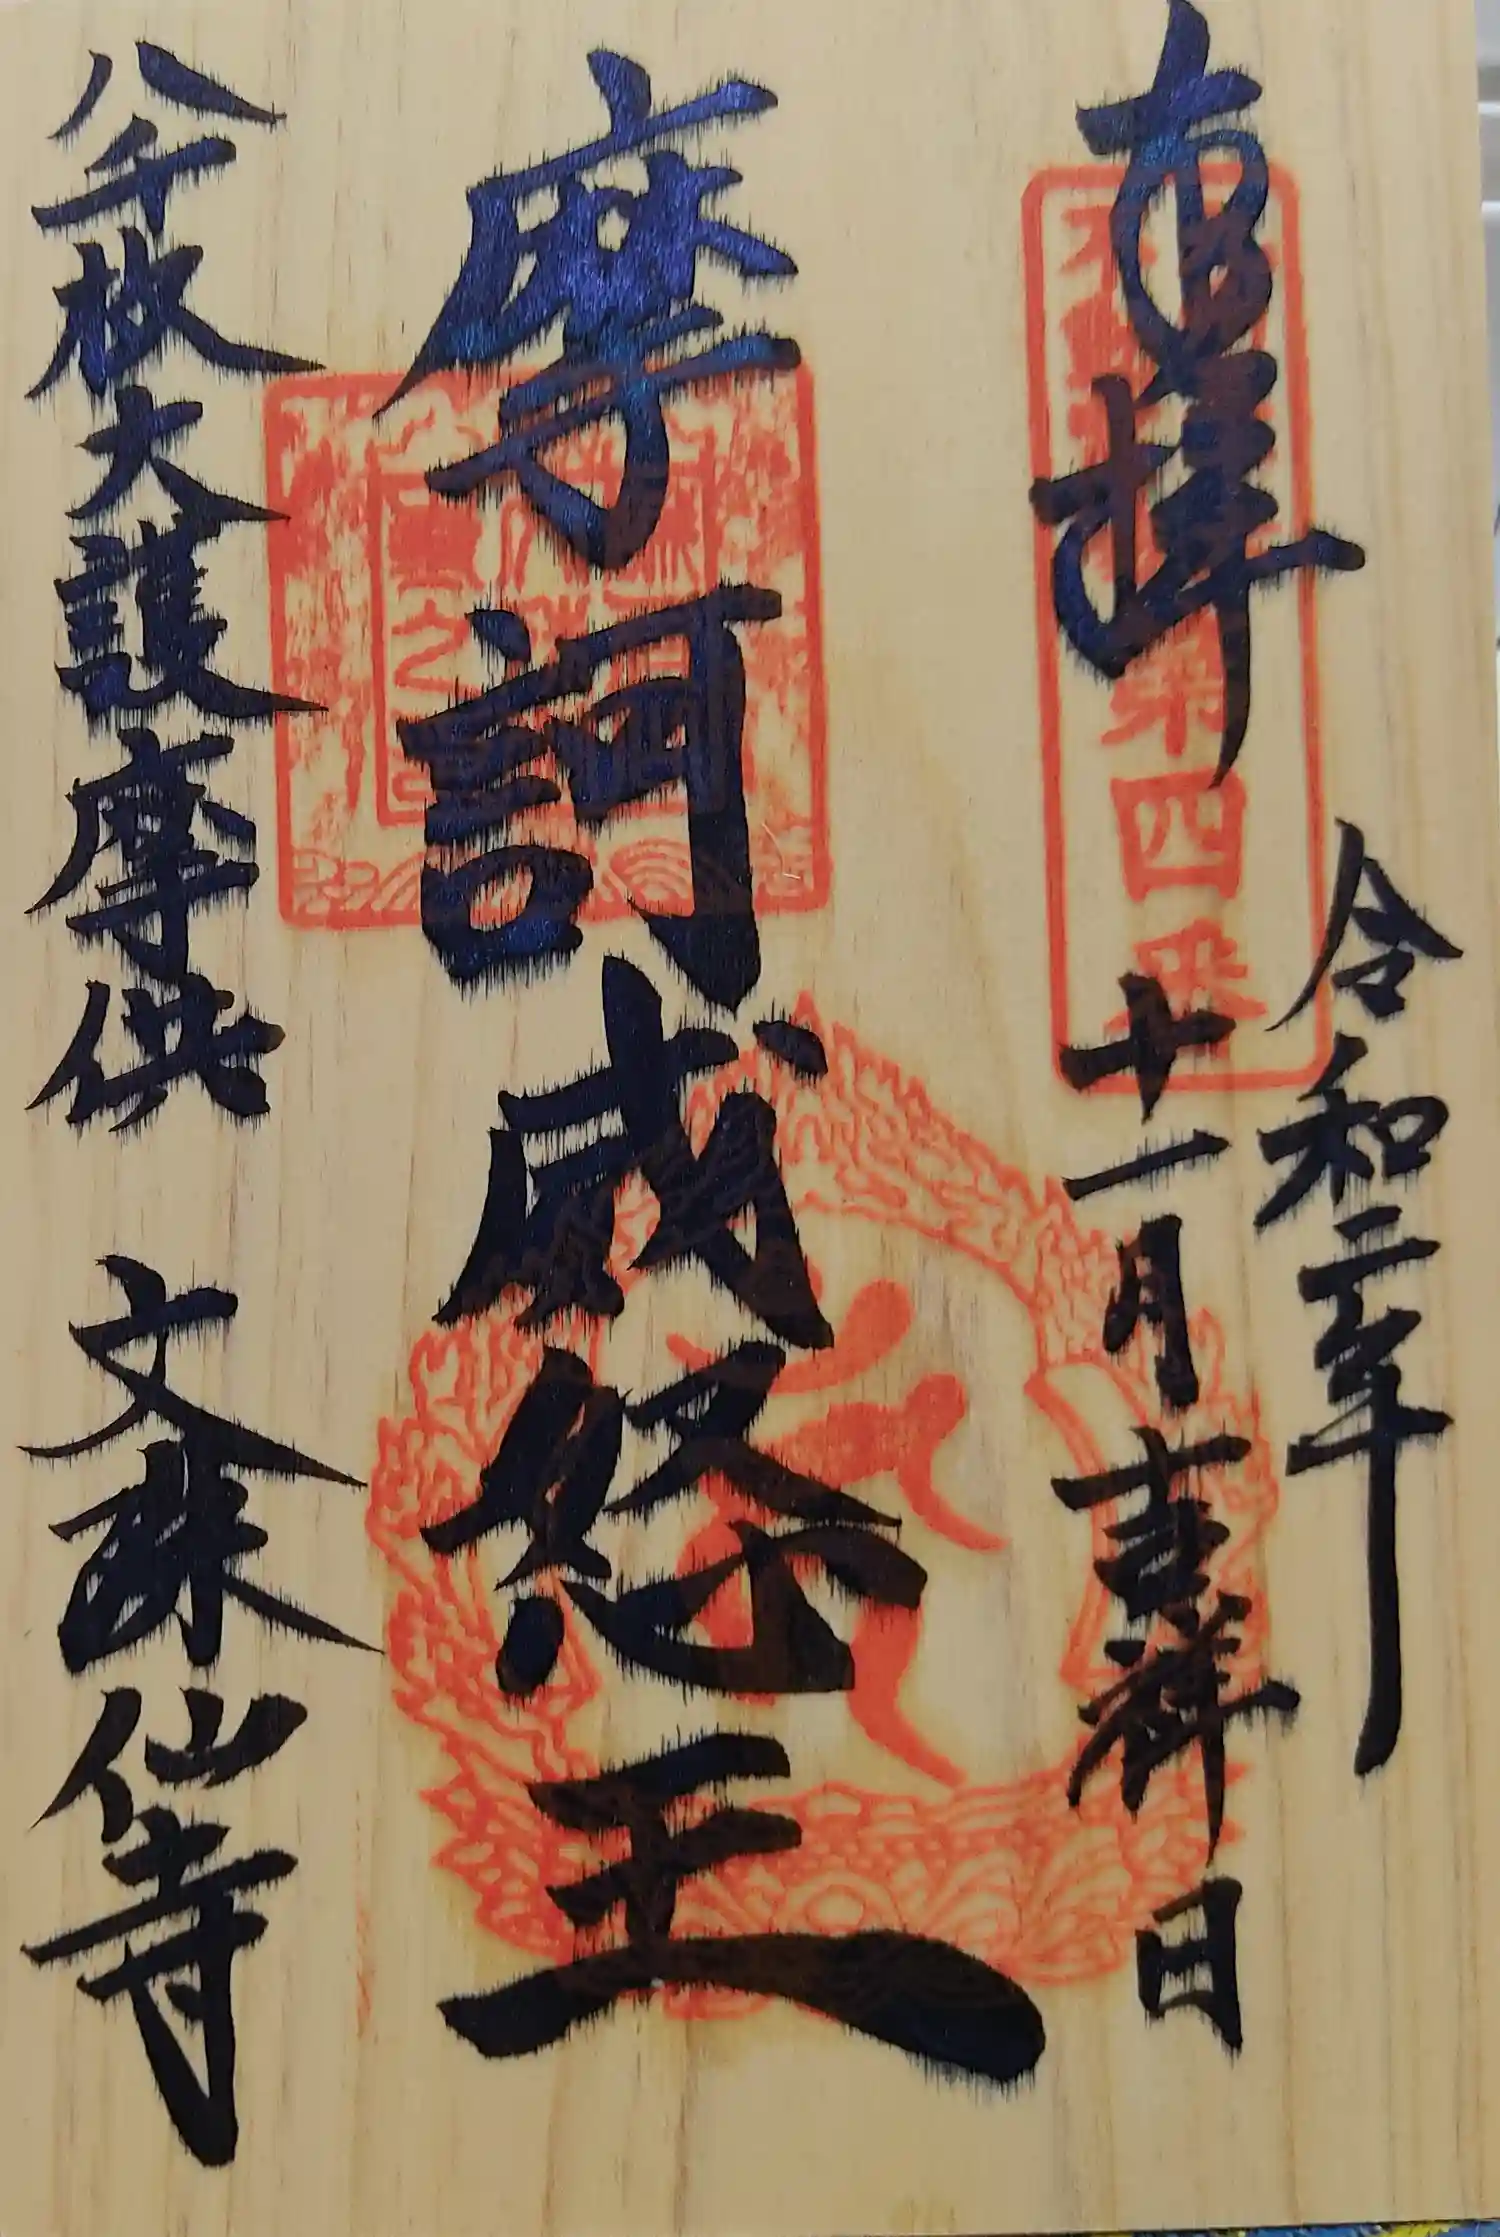 奉拝
令和二年
十一月吉祥日
第四番
摩訶威怒王
八千枚大護摩供 文殊仙寺